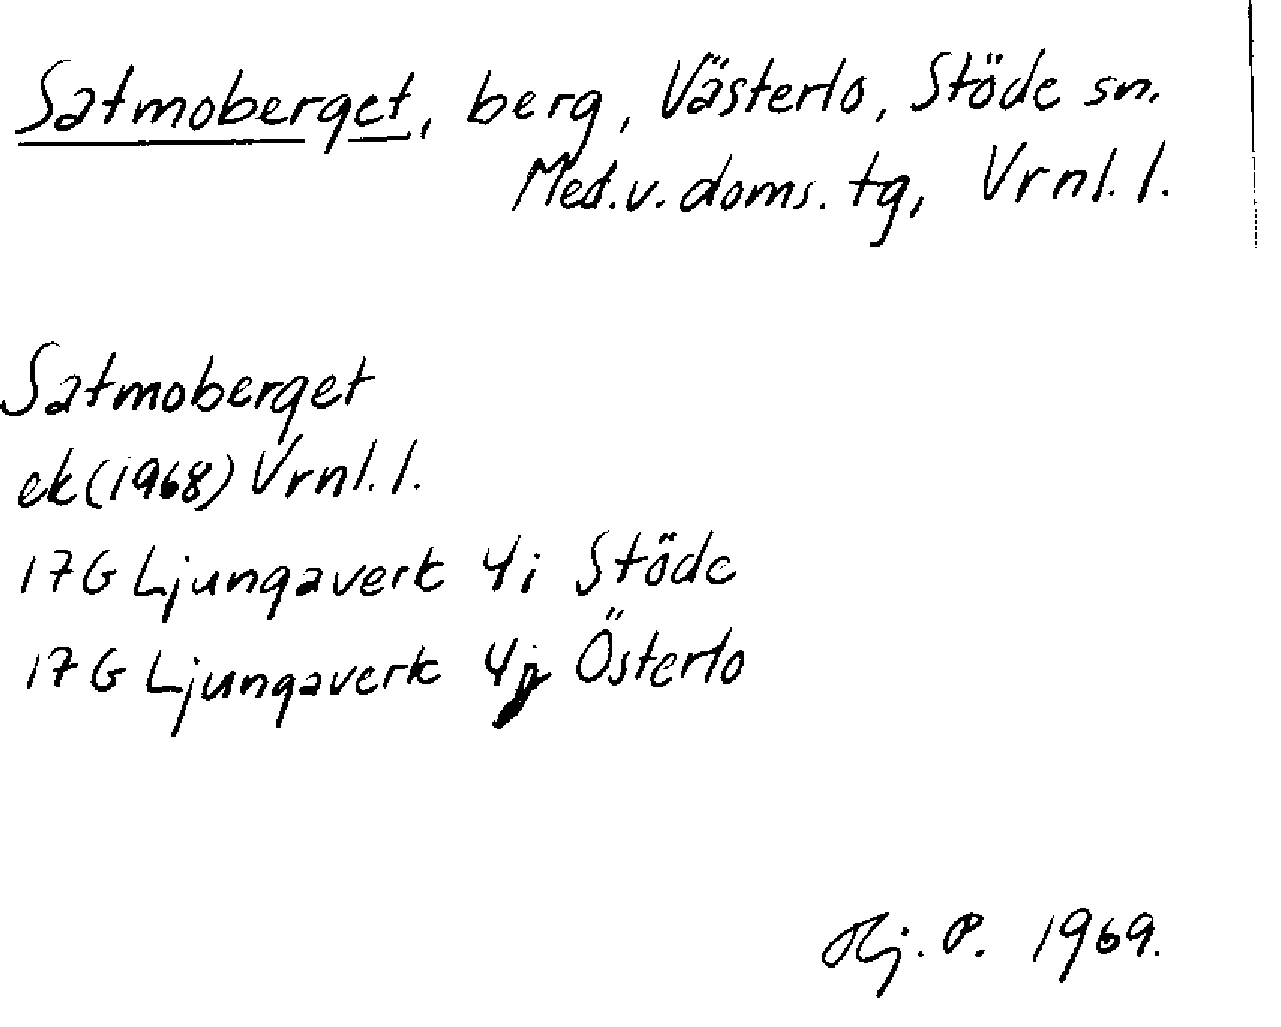 Satmoberget, berg, Västerlo, Stöde sn.
Med.v.doms.tg, Vrnl.l.
Satmoberget
ek(1968) Vrnl.l.
17G Ljungaverk 4i Stöde
17G Ljungaverk 4j Österlo
Hj.P. 1969.